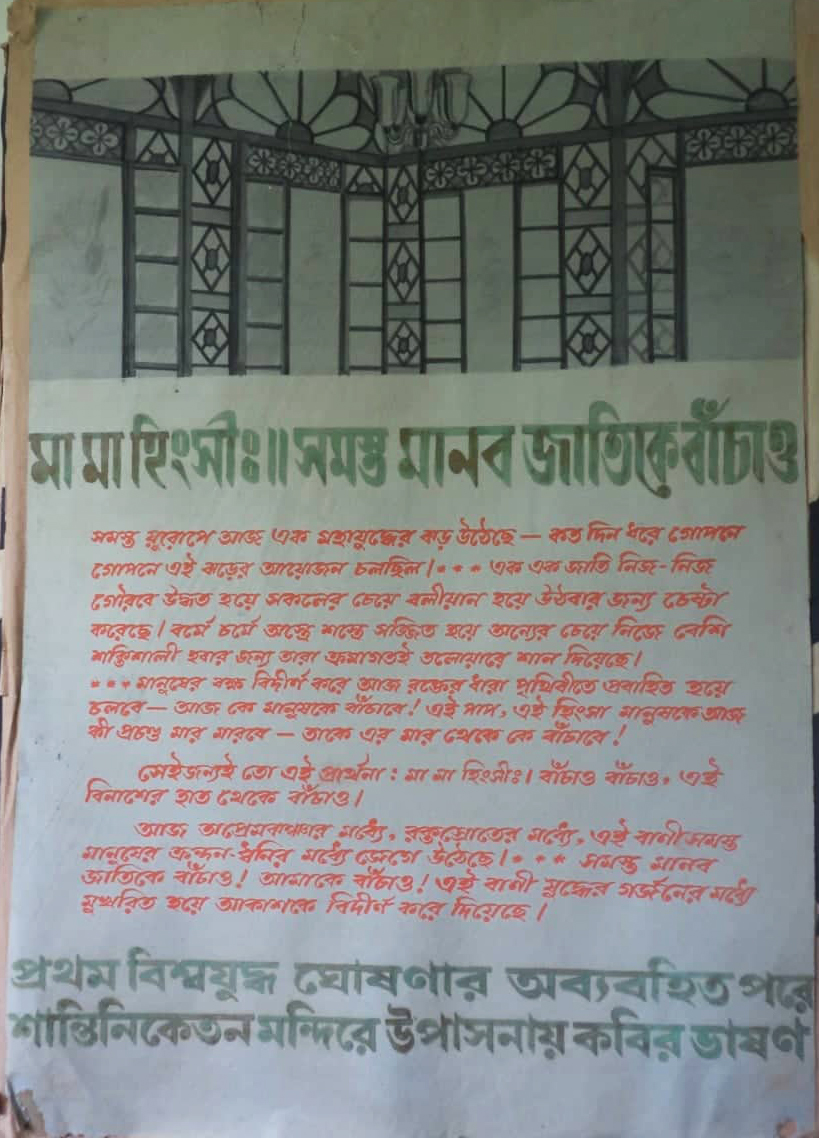 মা মা হিংসীঃ॥ সমস্ত মানব জাতিকে বাঁচাও
সমস্ত য়ুরোপে আজ এক মহাযুদ্ধের ঝড় উঠেছে — কত দিন ধরে গোপনে
গোপনে এই ঝড়ের আয়োজন চলছিল। * * * এক এক জাতি নিজ-নিজ
গৌরবে উদ্ধত হয়ে সকলের চেয়ে বলীয়ান হয়ে উঠবার জন্য চেষ্টা
করেছে। বর্মে চর্মে অস্ত্রে শস্ত্রে সজ্জিত হয়ে অন্যের চেয়ে নিজে বেশি
শক্তিশালী হবার জন্য তারা ক্রমাগতই তলোয়ারে শান দিয়েছে।
* * * মানুষের বক্ষ বিদীর্ণ করে আজ রক্তের ধারা পৃথিবীতে প্রবাহিত হয়ে
চলবে — আজ কে মানুষকে বাঁচাবে! এই পাপ, এই হিংসা মানুষকে আজ
কী প্রচণ্ড মার মারবে — তাকে এর মার থেকে কে বাঁচাবে!
সেইজন্যই তো এই প্রার্থনা : মা মা হিংসীঃ। বাঁচাও বাঁচাও, এই
বিনাশের হাত থেকে বাঁচাও।
আজ অপ্রেমঝঞ্ঝার মধ্যে, রক্তস্রোতের মধ্যে, এই বাণী সমস্ত
মানুষের ক্রন্দন-ধ্বনির মধ্যে জেগে উঠেছে। * * * সমস্ত মানব
জাতিকে বাঁচাও! আমাকে বাঁচাও! এই বাণী যুদ্ধের গর্জনের মধ্যে
মুখরিত হয়ে আকাশকে বিদীর্ণ করে দিয়েছে।
প্রথম বিশ্বযুদ্ধ ঘোষণার অব্যবহিত পরে
শান্তিনিকেতন মন্দিরে উপাসনায় কবির ভাষণ